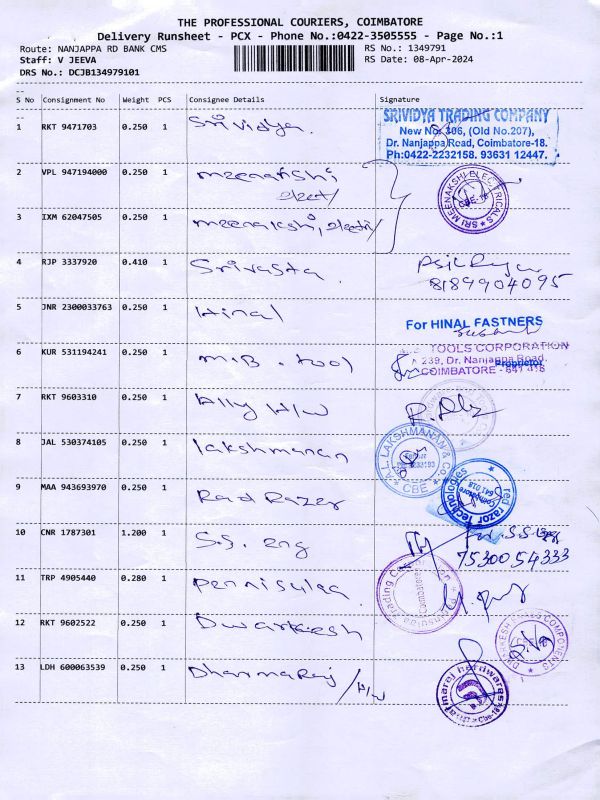 THE PROFESSIONAL COURIERS, COIMBATORE
Delivery Runsheet - PCX - Phone No.:0422-3505555 - Page No.:1
Route: NANJAPPA RD BANK CMS RS No.: 1349791
Staff: V JEEVA RS Date: 08-Apr-2024
DRS No.: DCJB134979101
S No Consignment No Weight PCS Consignee Details Signature
1 RKT 9471703 0.250 1 Srividya.
SRIVIDYA TRADING COMPANY
New No.306, (Old No.207),
Dr. Nanjappa Road, Coimbatore-18.
Ph:0422-2232158. 93631 12447.
2 VPL 947194000 0.250 1 meenakshi
elect/
SRI MEENAKSHI ELECTRICALS CBE-18
3 IXM 62047505 0.250 1 meenakshi, elect/
4 RJP 3337920 0.410 1 Srivasta.
8189904095
5 JNR 2300033763 0.250 1 Hinal
For HINAL FASTNERS
Proprietor
6 KUR 531194241 0.250 1 M.B. tool
TOOLS CORPORATION
239, Dr. Nanjappa Road.
COIMBATORE - 641 018
7 RKT 9603310 0.250 1 Ally H/w
8 JAL 530374105 0.250 1 lakshmanan
A.L. LAKSHMANAN & CO. CBE
9 MAA 943693970 0.250 1 Red Razer
red razor Technologies Coimbatore 641 018
10 CNR 1787301 1.200 1 S.S. eng
7530054333
11 TRP 4905440 0.280 1 Pennisulaa
Trading Coimbatore
12 RKT 9602522 0.250 1 Dwarkesh
COMPONENTS
13 LDH 600063539 0.250 1 Dharmaraj /H/w
hardwares Cbe-18